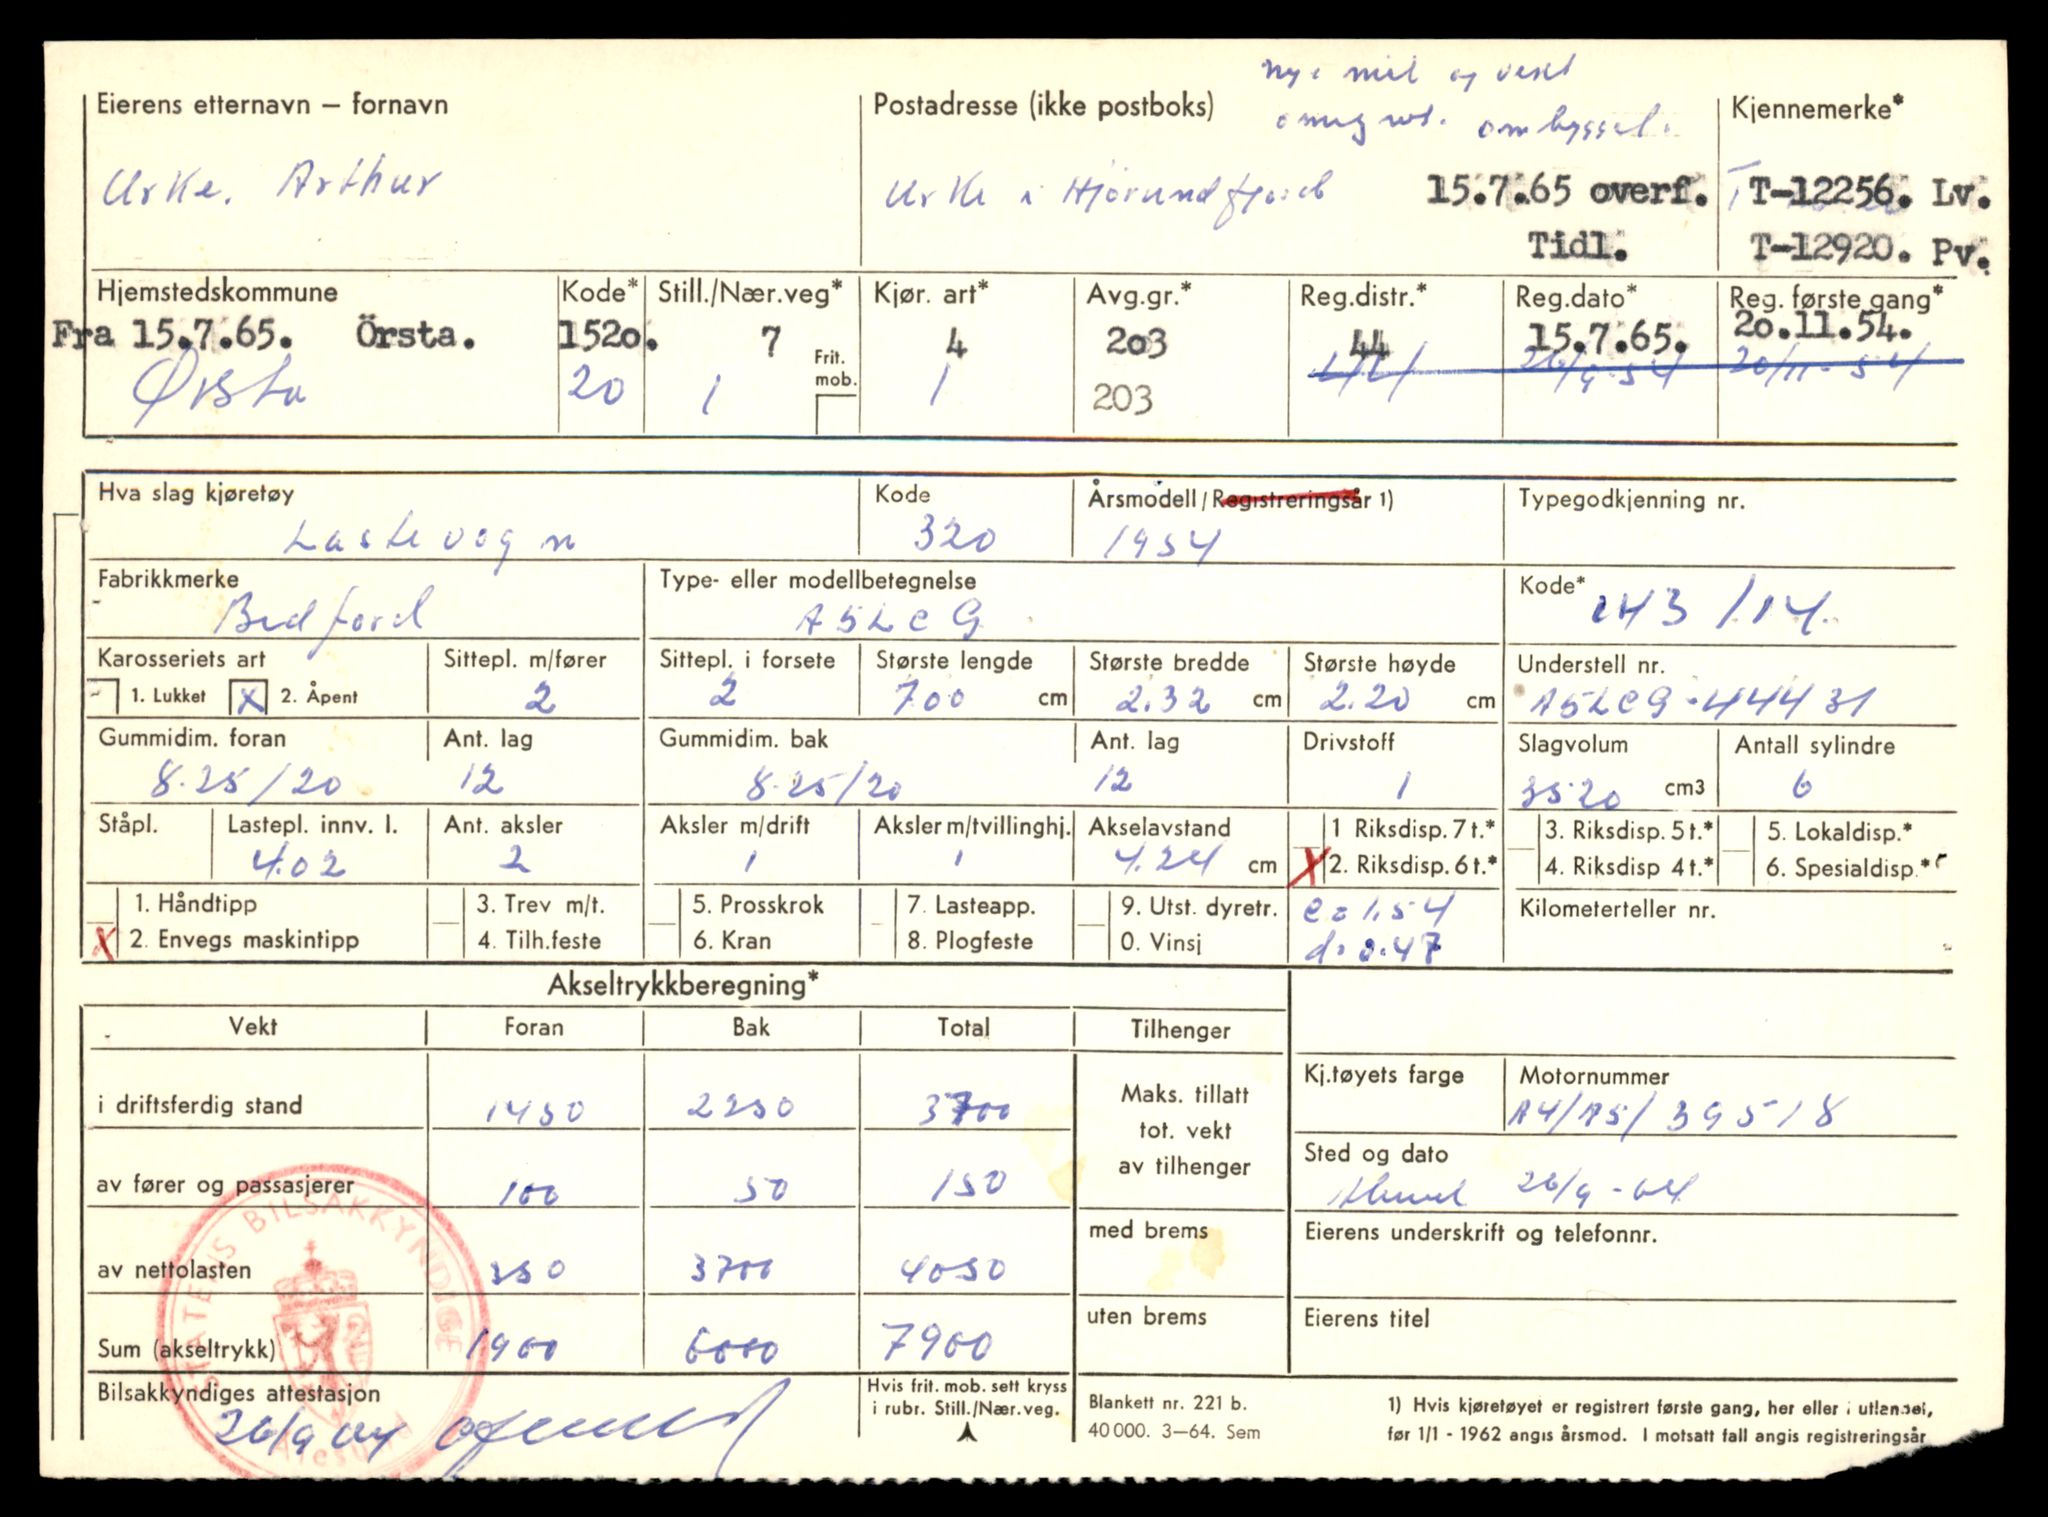 Nye mål og vekt
omg mot. ombyggel.
Eierens etternavn – fornavn Postadresse (ikke postboks) Kjennemerke*
Urke, Arthur Urke i Hjørundfjord 15.7.65 overf. T-12256. Lv.
Tidl. T-12920. Pv.
Hjemstedskommune Kode* Still./Nær.veg* Kjør. art* Avg.gr.* Reg.distr.* Reg.dato* Reg. første gang*
Fra 15.7.65. Örsta. 1520. 7 4 203 44 15.7.65. 20.11.54.
Frit. mob.
Ørsta 20 1 1 203 44 26/9-54 20/11-54
Hva slag kjøretøy Kode Årsmodell/Registreringsår 1) Typegodkjenning nr.
Lastevogn 320 1954
Fabrikkmerke Type- eller modellbetegnelse Kode*
Bedford A5LCG 143/14.
Karosseriets art Sittepl. m/fører Sittepl. i forsete Største lengde Største bredde Største høyde Understell nr.
1. Lukket X 2. Åpent 2 2 700 cm 2.32 cm 2.20 cm A5LCG-44431
Gummidim. foran Ant. lag Gummidim. bak Ant. lag Drivstoff Slagvolum Antall sylindre
8.25/20 12 8.25/20 12 1 3520 cm3 6
Ståpl. Lastepl. innv. l. Ant. aksler Aksler m/drift Aksler m/tvillinghj. Akselavstand 1 Riksdisp. 7 t.* 3. Riksdisp. 5 t.* 5. Lokaldisp.*
4.02 2 1 1 4.24 cm X 2. Riksdisp. 6 t.* 4. Riksdisp 4 t.* 6. Spesialdisp.*
1. Håndtipp 3. Trev m/t. 5. Prosskrok 7. Lasteapp. 9. Utst. dyretr. e=1.54 Kilometerteller nr.
X 2. Envegs maskintipp 4. Tilh.feste 6. Kran 8. Plogfeste 0. Vinsj d=0.47
Akseltrykkberegning*
Vekt Foran Bak Total Tilhenger
i driftsferdig stand 1450 2250 3700
Maks. tillatt
tot. vekt
av tilhenger
Kj.tøyets farge Motornummer
A4/A5/39518
av fører og passasjerer 100 50 150
Sted og dato
26/9-64
av nettolasten 350 3700 4050 med brems
Eierens underskrift og telefonnr.
Sum (akseltrykk) 1900 6000 7900 uten brems
Eierens titel
Bilsakkyndiges attestasjon
26/9 64
Hvis frit. mob. sett kryss
i rubr. Still./Nær.veg.
Blankett nr. 221 b.
40 000. 3–64. Sem
1) Hvis kjøretøyet er registrert første gang, her eller i utlandet,
før 1/1 - 1962 angis årsmod. I motsatt fall angis registreringsår
STATENS BILSAKKYNDIGE
Ålesund